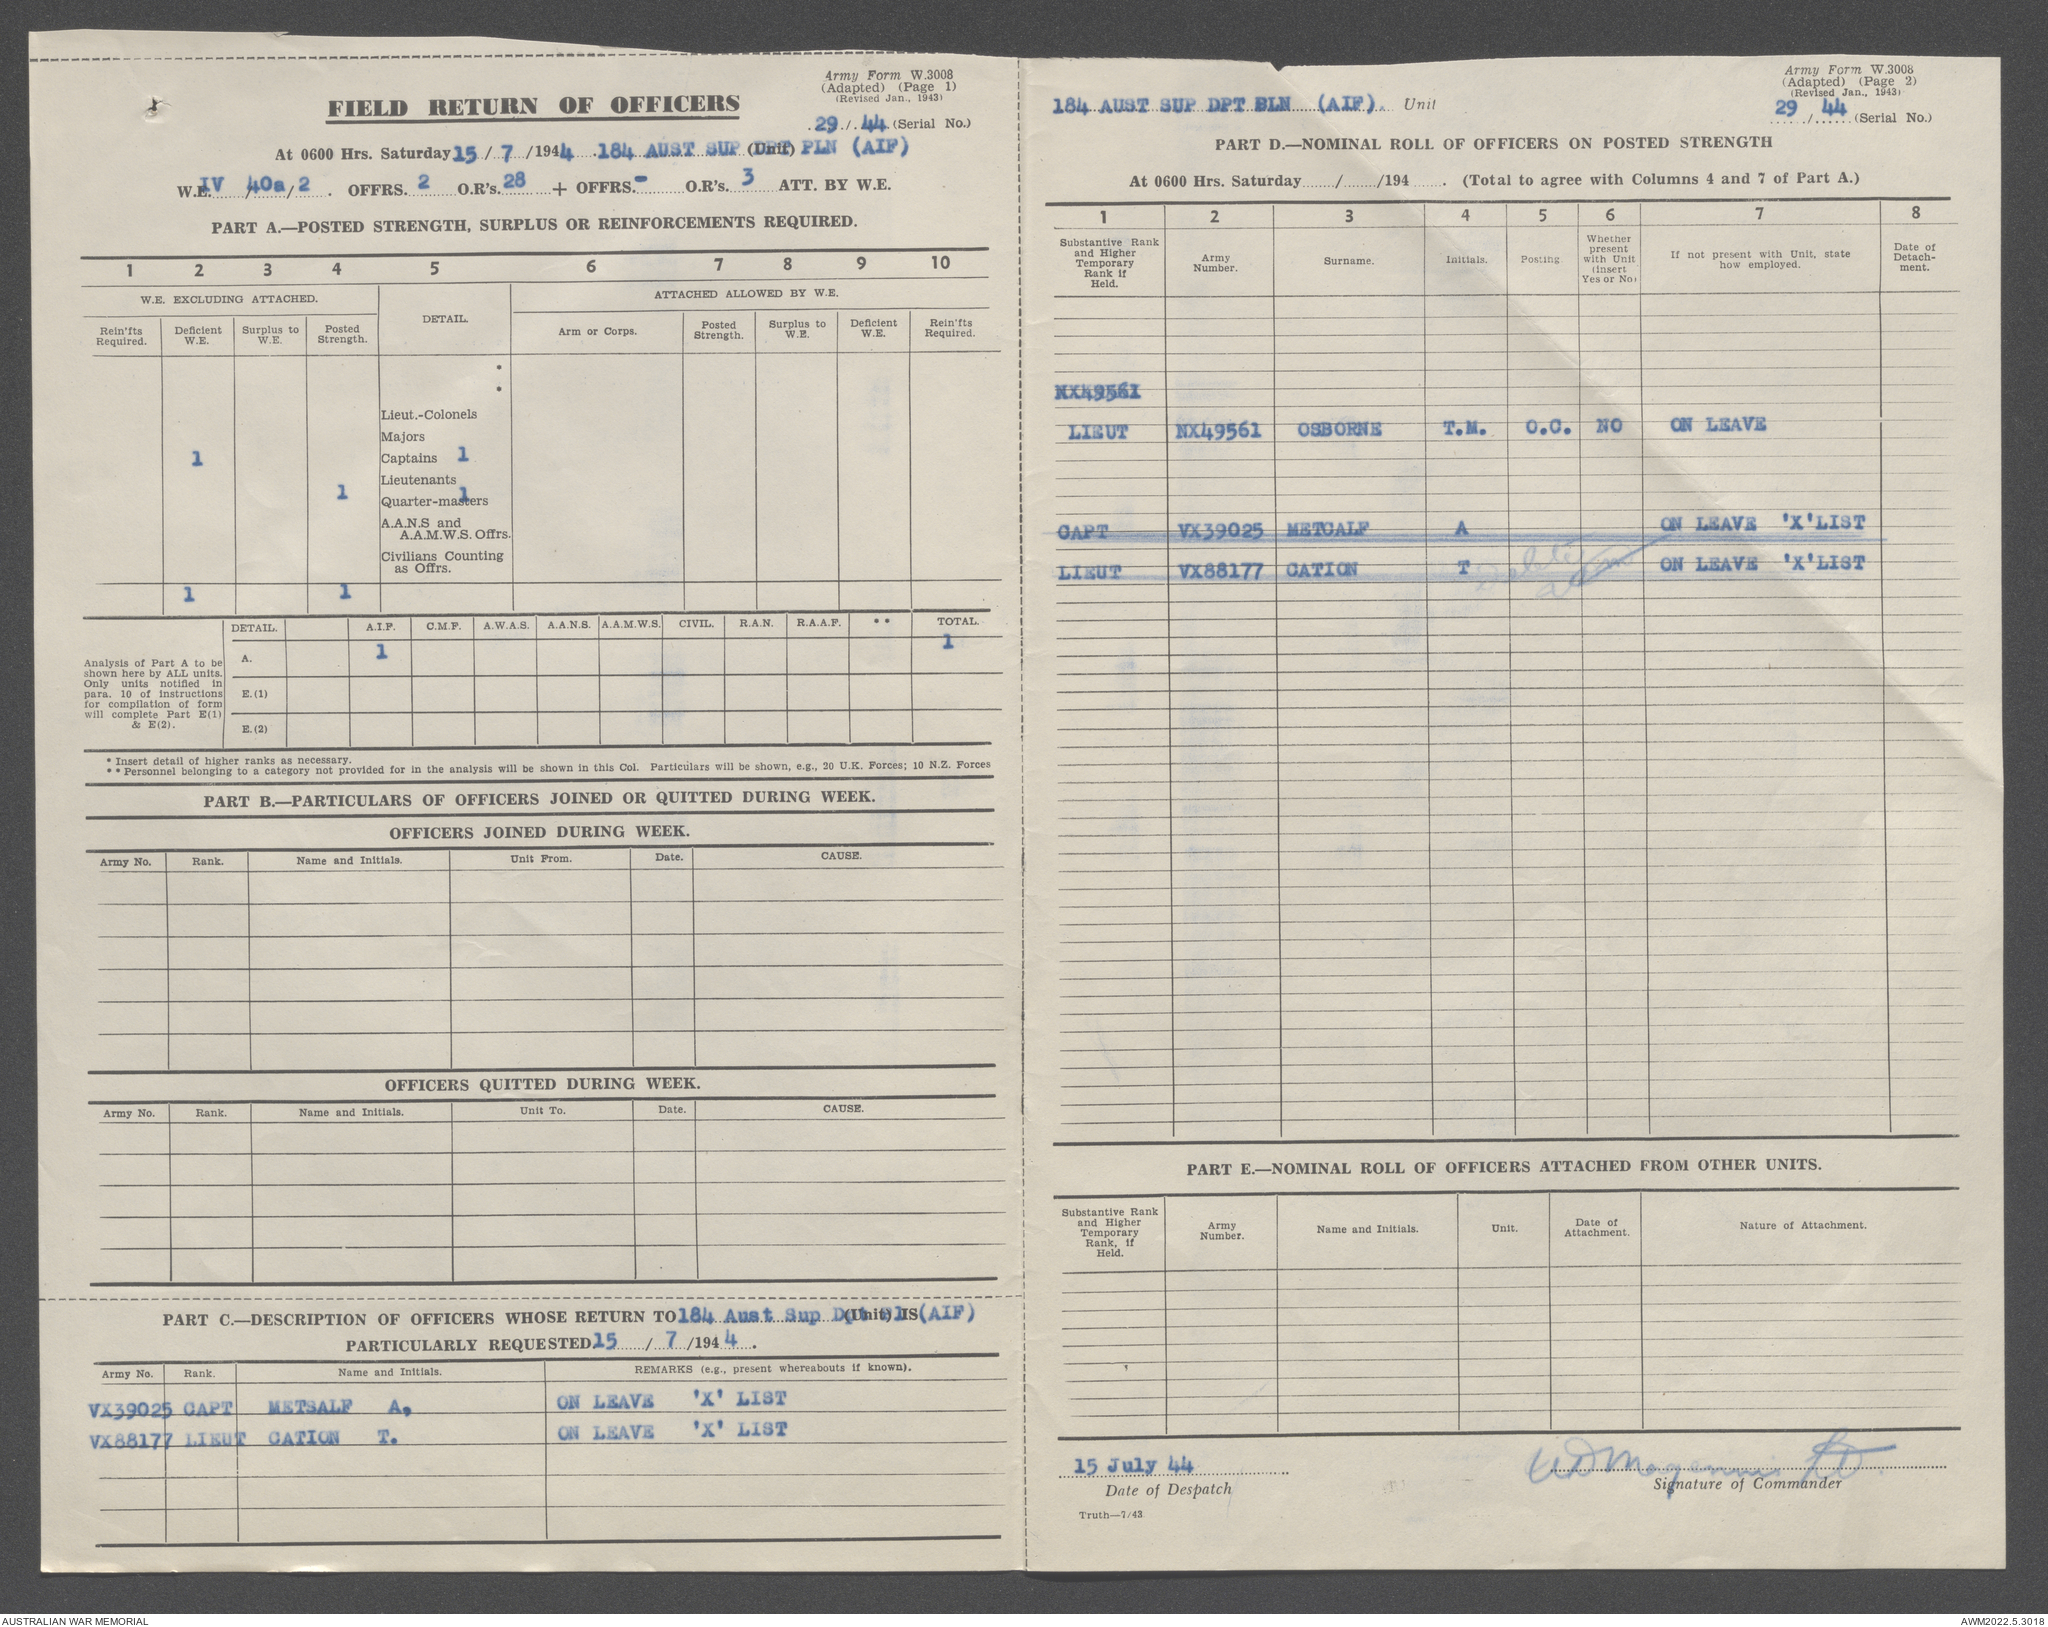 Army Form W.3008
(Adapted) (Page 1)
(Revised Jan., 1943)
FIELD RETURN OF OFFICERS
29 / 44 (Serial No.)
At 0600 Hrs. Saturday 15 / 7 / 1944 184 AUST SUP DPT PLN (AIF) (Unit)
W.E. IV /40a/ 2 . OFFRS. 2 O.R's. 28 + OFFRS. - O.R's. 3 ATT. BY W.E.
PART A.—POSTED STRENGTH, SURPLUS OR REINFORCEMENTS REQUIRED.
1 2 3 4 5 6 7 8 9 10
W.E. EXCLUDING ATTACHED. DETAIL. ATTACHED ALLOWED BY W.E.
Rein'fts Required. Deficient W.E. Surplus to W.E. Posted Strength. Arm or Corps. Posted Strength. Surplus to W.E. Deficient W.E. Rein'fts Required.
*
*
Lieut.-Colonels
Majors
1 Captains 1
Lieutenants
1 Quarter-masters 1
A.A.N.S and
A.A.M.W.S. Offrs.
Civilians Counting
as Offrs.
1 1
DETAIL. A.I.F. C.M.F. A.W.A.S. A.A.N.S. A.A.M.W.S. CIVIL. R.A.N. R.A.A.F. ** TOTAL.
A. 1 1
E.(1)
E.(2)
Analysis of Part A to be
shown here by ALL units.
Only units notified in
para. 10 of instructions
for compilation of form
will complete Part E(1)
& E(2).
* Insert detail of higher ranks as necessary.
** Personnel belonging to a category not provided for in the analysis will be shown in this Col. Particulars will be shown, e.g., 20 U.K. Forces; 10 N.Z. Forces
PART B.—PARTICULARS OF OFFICERS JOINED OR QUITTED DURING WEEK.
OFFICERS JOINED DURING WEEK.
Army No. Rank. Name and Initials. Unit From. Date. CAUSE.
OFFICERS QUITTED DURING WEEK.
Army No. Rank. Name and Initials. Unit To. Date. CAUSE.
PART C.—DESCRIPTION OF OFFICERS WHOSE RETURN TO 184 Aust Sup Dpt Pl (AIF) (Unit) IS
PARTICULARLY REQUESTED 15 / 7 /1944.
Army No. Rank. Name and Initials. REMARKS (e.g., present whereabouts if known).
VX39025 CAPT METSALF A, ON LEAVE 'X' LIST
VX88177 LIEUT CATION T. ON LEAVE 'X' LIST
Army Form W.3008
(Adapted) (Page 2)
(Revised Jan., 1943)
184 AUST SUP DPT PLN (AIF). Unit
29 / 44 (Serial No.)
PART D.—NOMINAL ROLL OF OFFICERS ON POSTED STRENGTH
At 0600 Hrs. Saturday / /194 . (Total to agree with Columns 4 and 7 of Part A.)
1 2 3 4 5 6 7 8
Substantive Rank and Higher Temporary Rank if Held. Army Number. Surname. Initials. Posting Whether present with Unit (insert Yes or No) If not present with Unit, state how employed. Date of Detachment.
NX49561
LIEUT NX49561 OSBORNE T.M. O.C. NO ON LEAVE
CAPT VX39025 METCALF A ON LEAVE 'X'LIST
LIEUT VX88177 CATION T ON LEAVE 'X'LIST
PART E.—NOMINAL ROLL OF OFFICERS ATTACHED FROM OTHER UNITS.
Substantive Rank and Higher Temporary Rank, if Held. Army Number. Name and Initials. Unit. Date of Attachment. Nature of Attachment.
15 July 44
Date of Despatch
Signature of Commander
Truth—7/43
AUSTRALIAN WAR MEMORIAL
AWM2022.5.3018